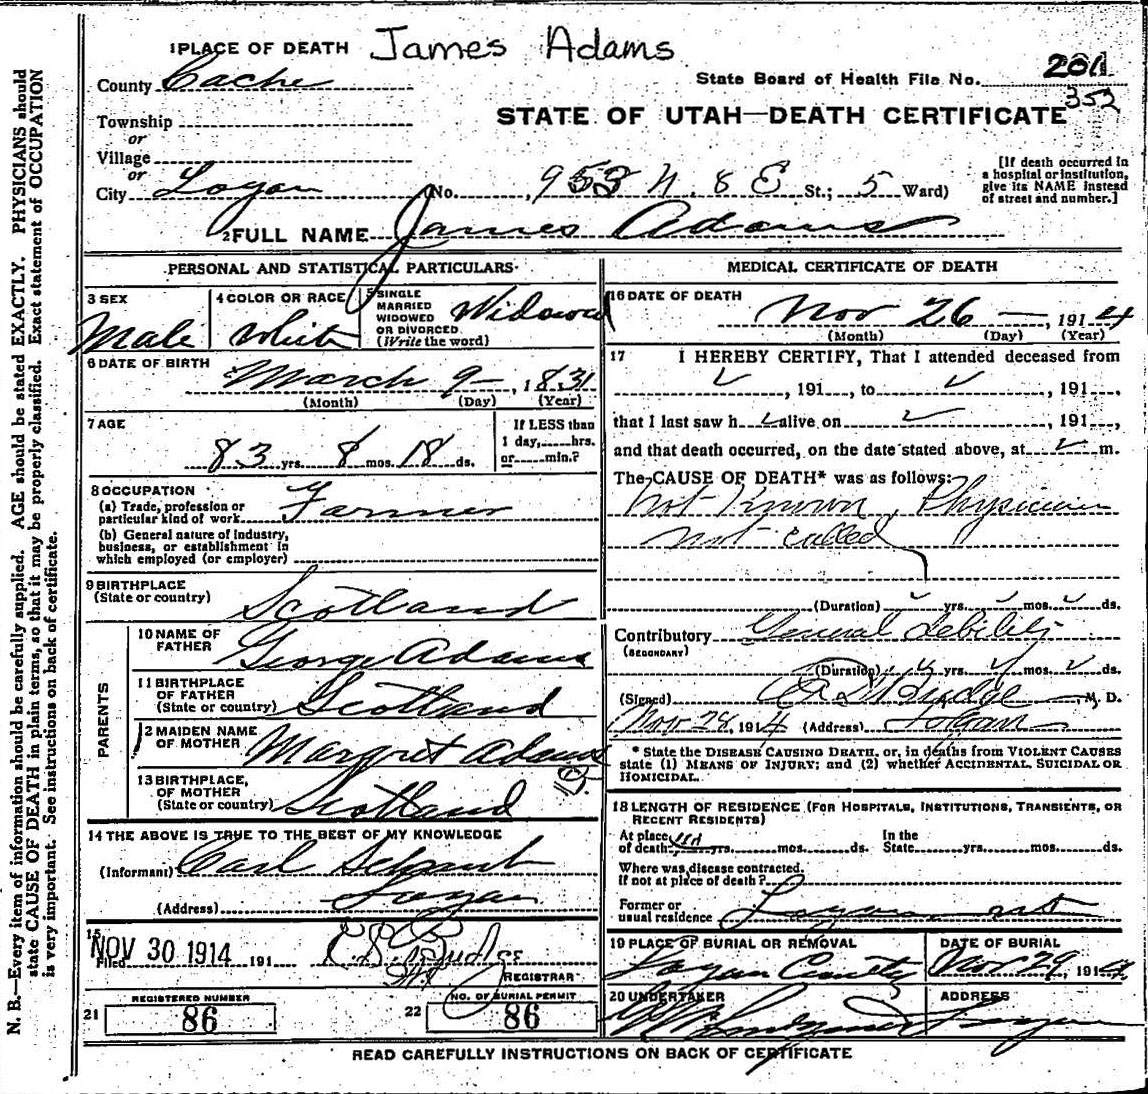 James Adams
1 PLACE OF DEATH
County Cache
State Board of Health File No. 201
352
STATE OF UTAH—DEATH CERTIFICATE
Township
or
Village
or
City Logan No. 953 N. 8 E St.; 5 Ward)
[If death occurred in
a hospital or institution,
give its NAME instead
of street and number.]
2 FULL NAME James Adams
PERSONAL AND STATISTICAL PARTICULARS
3 SEX
Male
4 COLOR OR RACE
White
5 SINGLE
MARRIED
WIDOWED
OR DIVORCED
(Write the word)
Widowed
6 DATE OF BIRTH
March 9 — , 1831
(Month) (Day) (Year)
7 AGE
83 yrs. 8 mos. 18 ds.
If LESS than
1 day, hrs.
or min.?
8 OCCUPATION
(a) Trade, profession or
particular kind of work Farmer
(b) General nature of industry,
business, or establishment in
which employed (or employer)
9 BIRTHPLACE
(State or country) Scotland
PARENTS
10 NAME OF
FATHER George Adams
11 BIRTHPLACE
OF FATHER
(State or country) Scotland
12 MAIDEN NAME
OF MOTHER Margret Adams
13 BIRTHPLACE,
OF MOTHER
(State or country) Scotland
14 THE ABOVE IS TRUE TO THE BEST OF MY KNOWLEDGE
(Informant) Carl
(Address) Logan
15
Filed NOV 30 1914 191
REGISTRAR
REGISTERED NUMBER
21 86
NO. OF BURIAL PERMIT
22 86
MEDICAL CERTIFICATE OF DEATH
16 DATE OF DEATH
Nov 26 — , 1914
(Month) (Day) (Year)
17 I HEREBY CERTIFY, That I attended deceased from
✓ , 191 , to ✓ , 191 ,
that I last saw h ✓ alive on ✓ , 191 ,
and that death occurred, on the date stated above, at ✓ m.
The CAUSE OF DEATH* was as follows:
Not Known, Physician
not called
(Duration) ✓ yrs. ✓ mos. ✓ ds.
Contributory General debility
(SECONDARY)
(Duration) ✓ yrs. ✓ mos. ✓ ds.
(Signed) Budge M. D.
Nov 28, 1914 (Address) Logan
* State the DISEASE CAUSING DEATH, or, in deaths from VIOLENT CAUSES
state (1) MEANS OF INJURY; and (2) whether ACCIDENTAL, SUICIDAL OR
HOMICIDAL.
18 LENGTH OF RESIDENCE (FOR HOSPITALS, INSTITUTIONS, TRANSIENTS, OR
RECENT RESIDENTS)
At place
of death yrs. mos. ds.
In the
State yrs. mos. ds.
Where was disease contracted.
If not at place of death?
Former or
usual residence Logan
19 PLACE OF BURIAL OR REMOVAL
Logan
DATE OF BURIAL
Nov 29, 1914
20 UNDERTAKER
ADDRESS
Logan
READ CAREFULLY INSTRUCTIONS ON BACK OF CERTIFICATE
N. B.—Every item of information should be carefully supplied. AGE should be stated EXACTLY. PHYSICIANS should
state CAUSE OF DEATH in plain terms, so that it may be properly classified. Exact statement of OCCUPATION
is very important. See instructions on back of certificate.